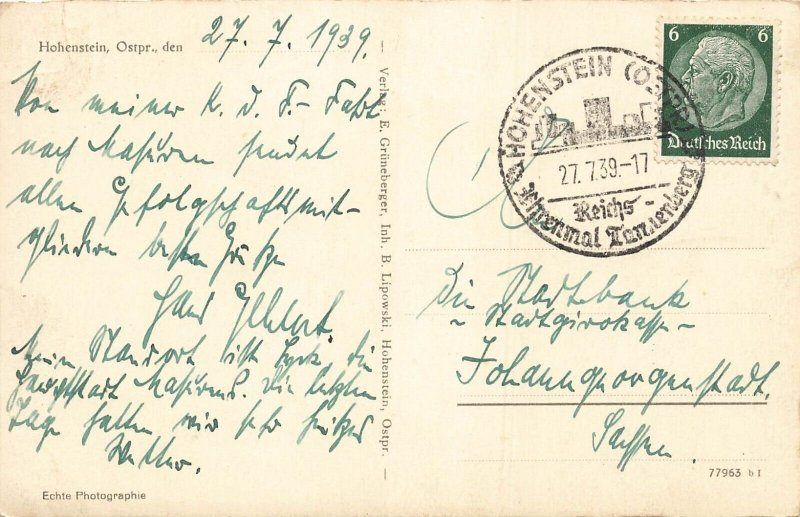 Hohenstein, Ostpr., den 27. 7. 1939.
Von meiner K. d. F.- Fahrt
nach Masuren sendet
allen Gefolgschaftsmit-
gliedern beste Grüße
Hans
Mein Standort ist Lyck, die
Hauptstadt Masurens. Die letzten
Tage hatten wir sehr heißes
Wetter.
Echte Photographie
Verlag: E. Grüneberger, Inh. B. Lipowski, Hohenstein, Ostpr.
HOHENSTEIN (OSTPR)
27.7.39.-17
Reichs-
Ehrenmal Tannenberg
6 6
Deutsches Reich
Die Stadtbank
- Stadtgirokasse -
Johanngeorgenstadt.
Sachsen.
77963 b I